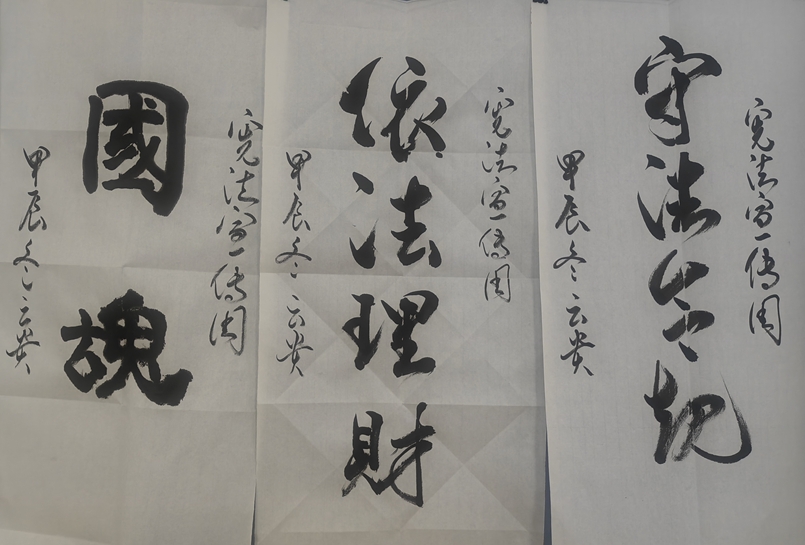 宪法宣傳周
守法合规
甲辰冬云贵
宪法宣傳周
依法理財
甲辰冬云贵
宪法宣傳周
國魂
甲辰冬云贵